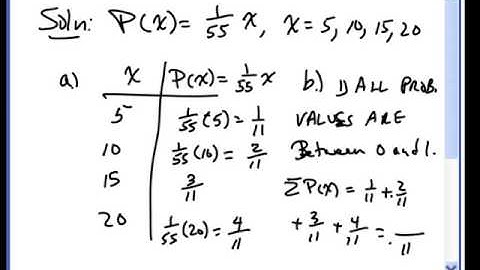 Soln: P(x) = 1/55 x, x = 5, 10, 15, 20
a) x P(x) = 1/55 x
5 1/55 (5) = 1/11
10 1/55 (10) = 2/11
15 3/11
20 1/55 (20) = 4/11
b.) 1) ALL PROB.
VALUES ARE
Between 0 and 1.
ΣP(x) = 1/11 + 2/11
+ 3/11 + 4/11 = __/11